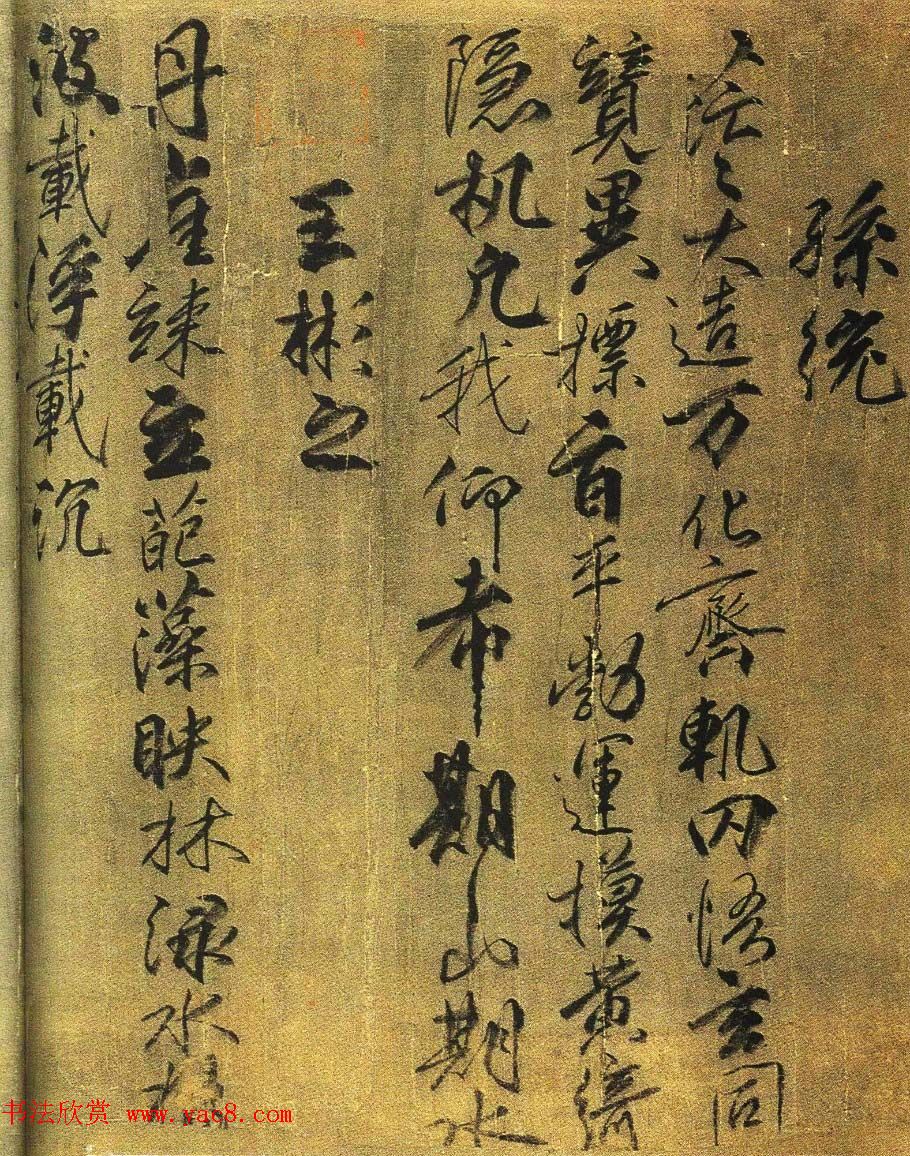 孫統
茫〻大造万化齊軌罔悟玄同
競異摽旨平勃運摸黄綺
隱机凡我仰希期山期水
王彬之
丹崖竦立葩藻映林渌水揚
波載浮載沉
书法欣赏 www.yac8.com